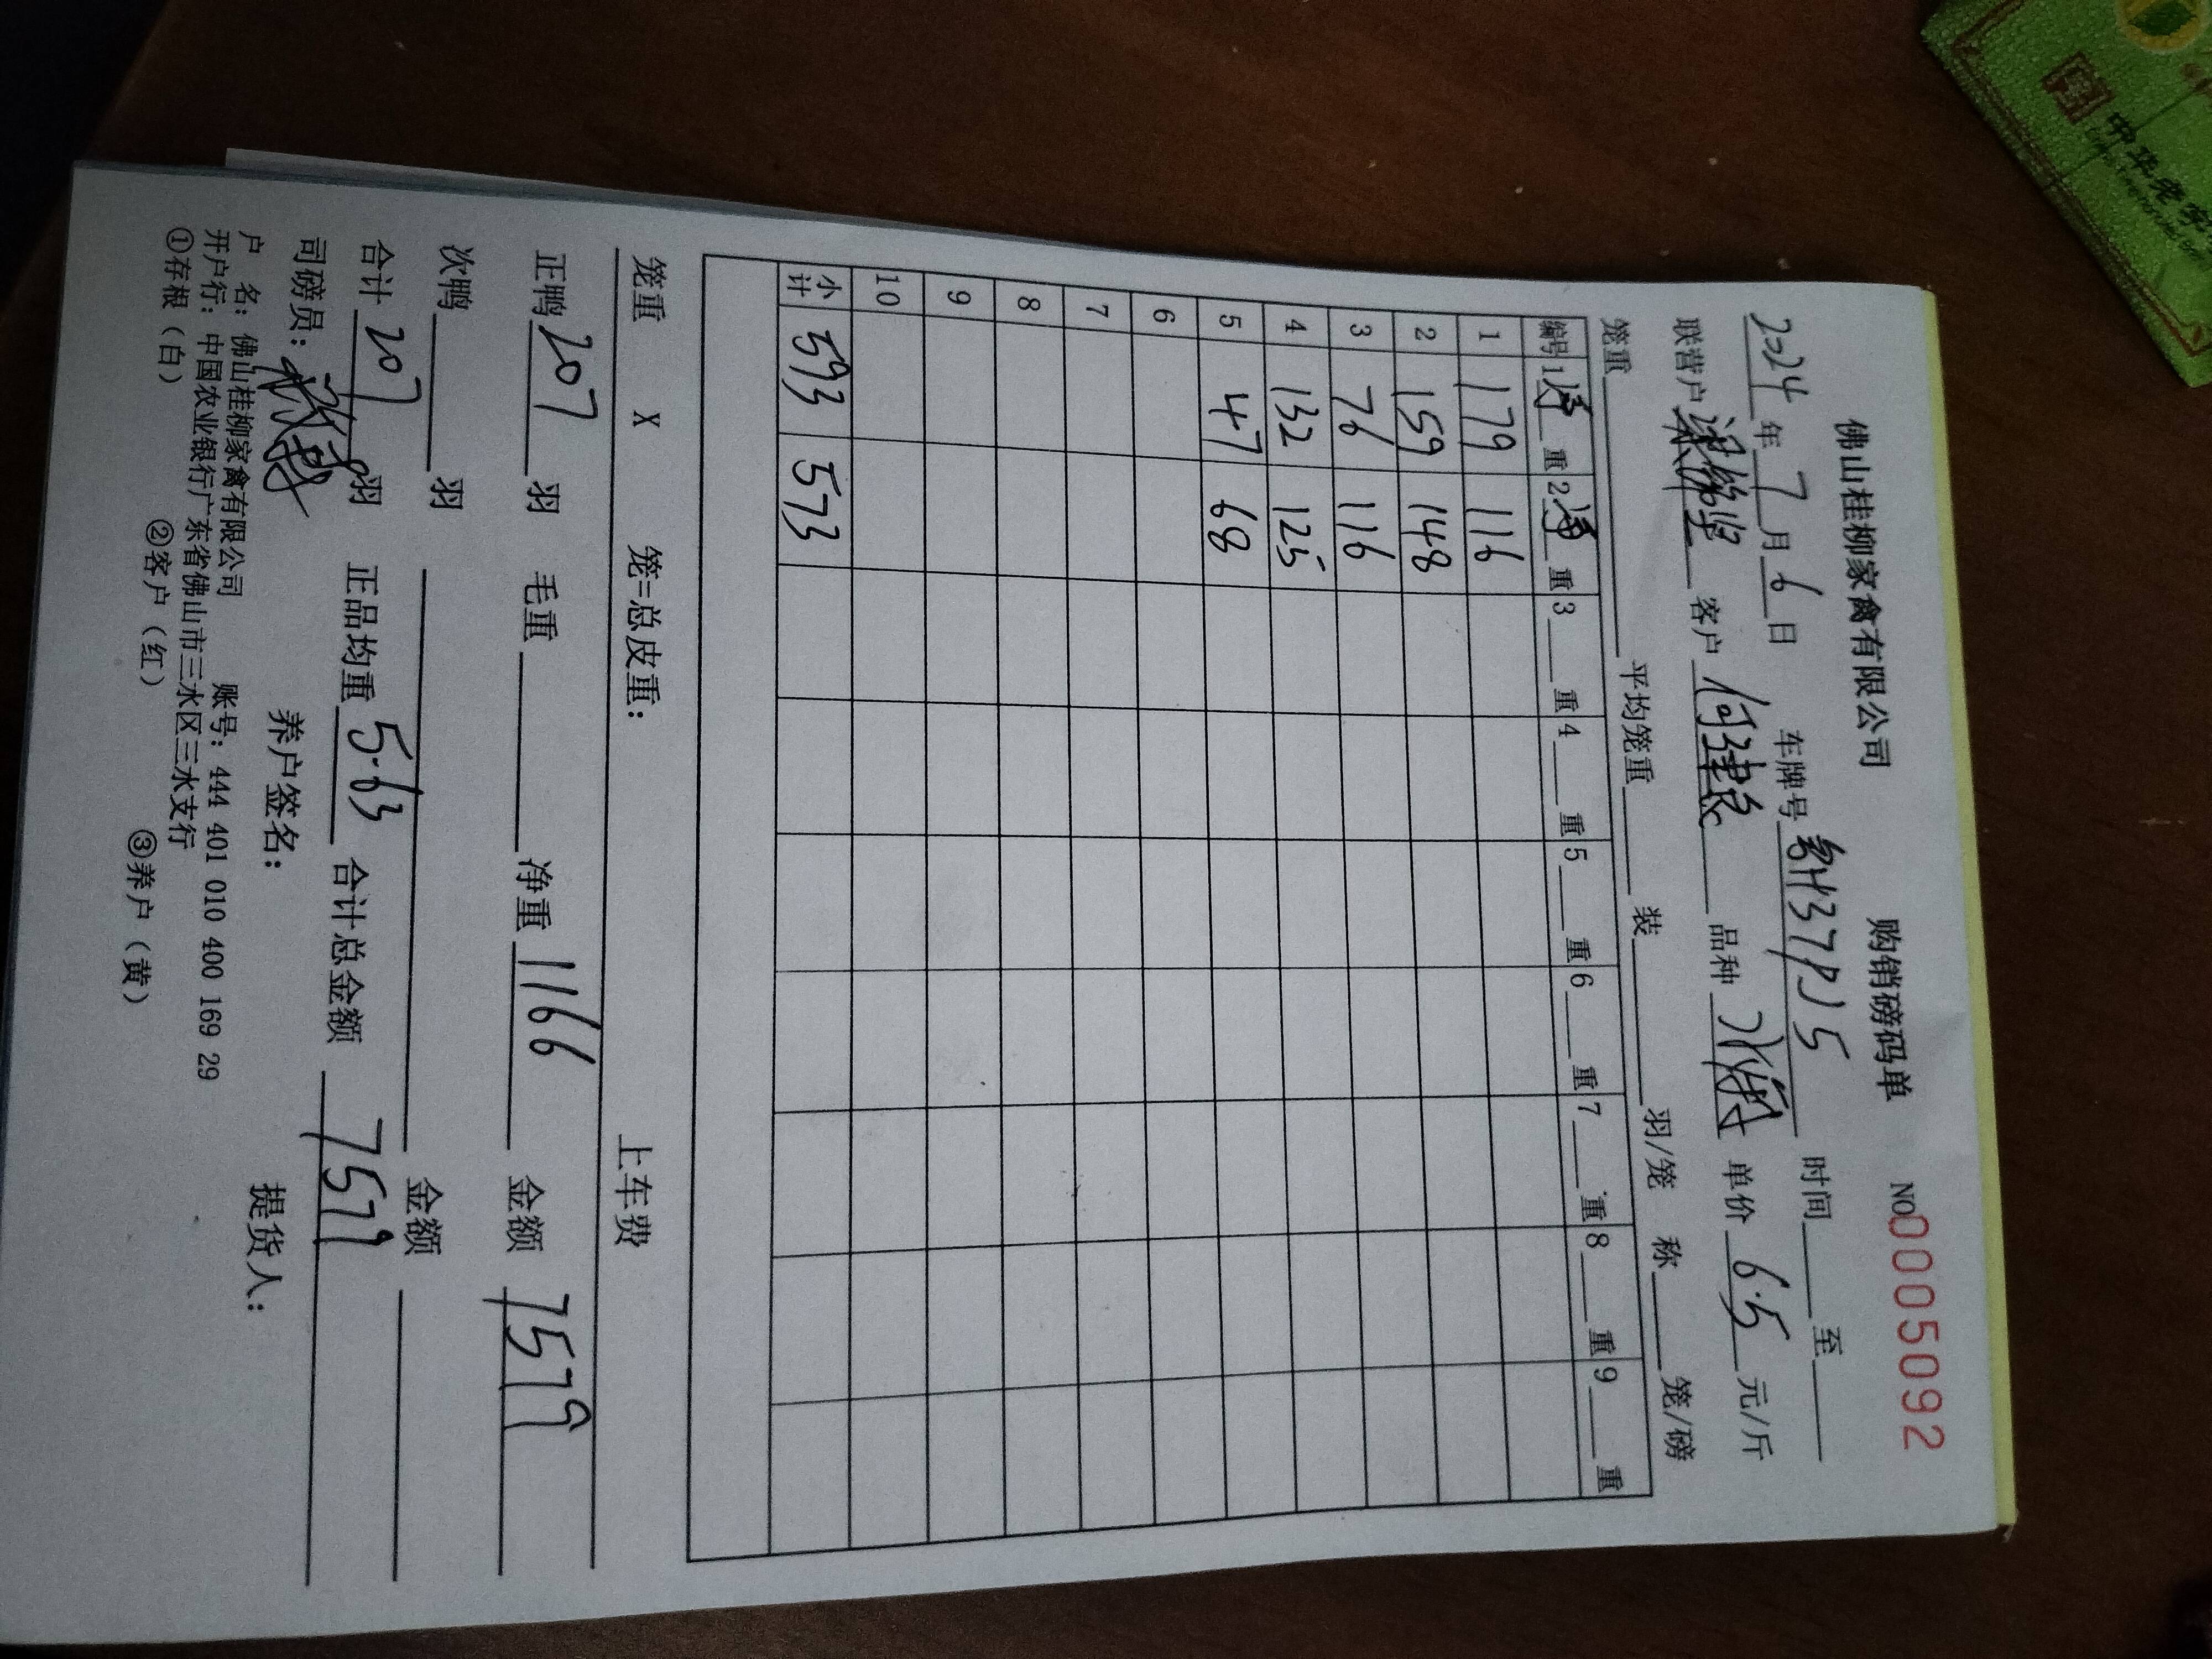 佛山桂柳家禽有限公司 购销磅码单 NO 0005092
2024年7月6日 车牌号 粤H37P15 时间 至
联营户 客户 何建良 品种 单价 6.5 元/斤
笼重 平均笼重 装 羽/笼 称 笼/磅
编号 1净重 2净重 3 重 4 重 5 重 6 重 7 重 8 重 9 重
1 179 116
2 159 148
3 76 116
4 132 125
5 47 68
6
7
8
9
10
小计 593 573
笼重 X 笼=总皮重: 上车费
正鸭 207 羽 毛重 净重 1166 金额 7579
次鸭 羽 金额
合计 207 羽 正品均重 5.63 合计总金额 7579
司磅员: 养户签名: 提货人:
户 名: 佛山桂柳家禽有限公司 账号: 444 401 010 400 169 29
开户行: 中国农业银行广东省佛山市三水区三水支行
①存根(白) ②客户(红) ③养户(黄)
中华老字